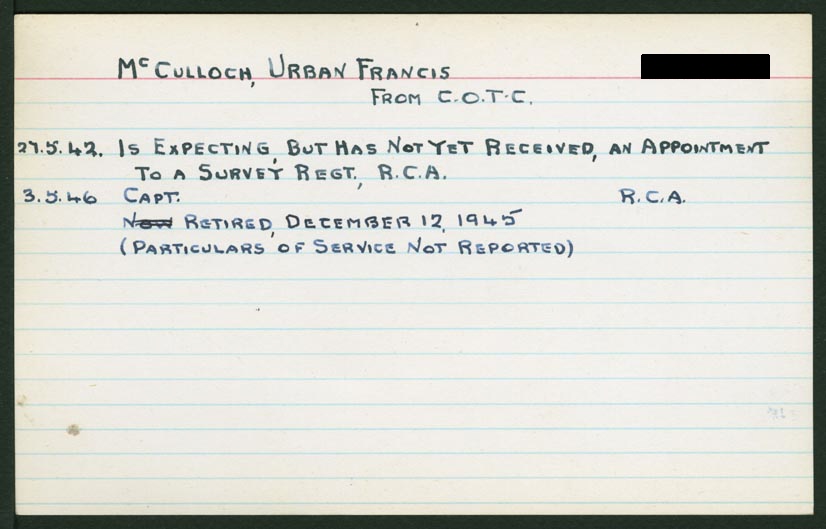 McCulloch, Urban Francis
From C.O.T.C.
27.5.42. Is Expecting, But Has Not Yet Received, an Appointment
To a Survey Regt., R.C.A.
3.5.46 Capt. R.C.A.
Now Retired, December 12, 1945
(Particulars of Service Not Reported)